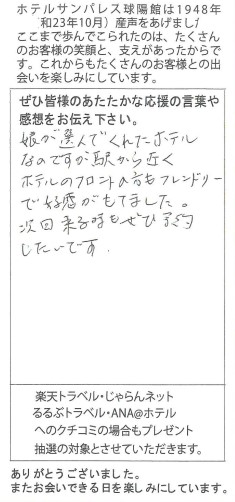 ホテルサンパレス球陽館は1948年
和23年10月）産声をあげまし
ここまで歩んでこられたのは、たくさん
のお客様の笑顔と、支えがあったからで
す。これからもたくさんのお客様との出
会いを楽しみにしています。
ぜひ皆様のあたたかな応援の言葉や
感想をお伝え下さい。
娘が選んでくれたホテル
なのですが駅から近く
ホテルのフロントの方もフレンドリー
で好感がもてました。
次回来る時もぜひ予約
したいです.
楽天トラベル・じゃらんネット
るるぶトラベル・ANA@ホテル
へのクチコミの場合もプレゼント
抽選の対象とさせていただきます。
ありがとうございました。
またお会いできる日を楽しみにしています。